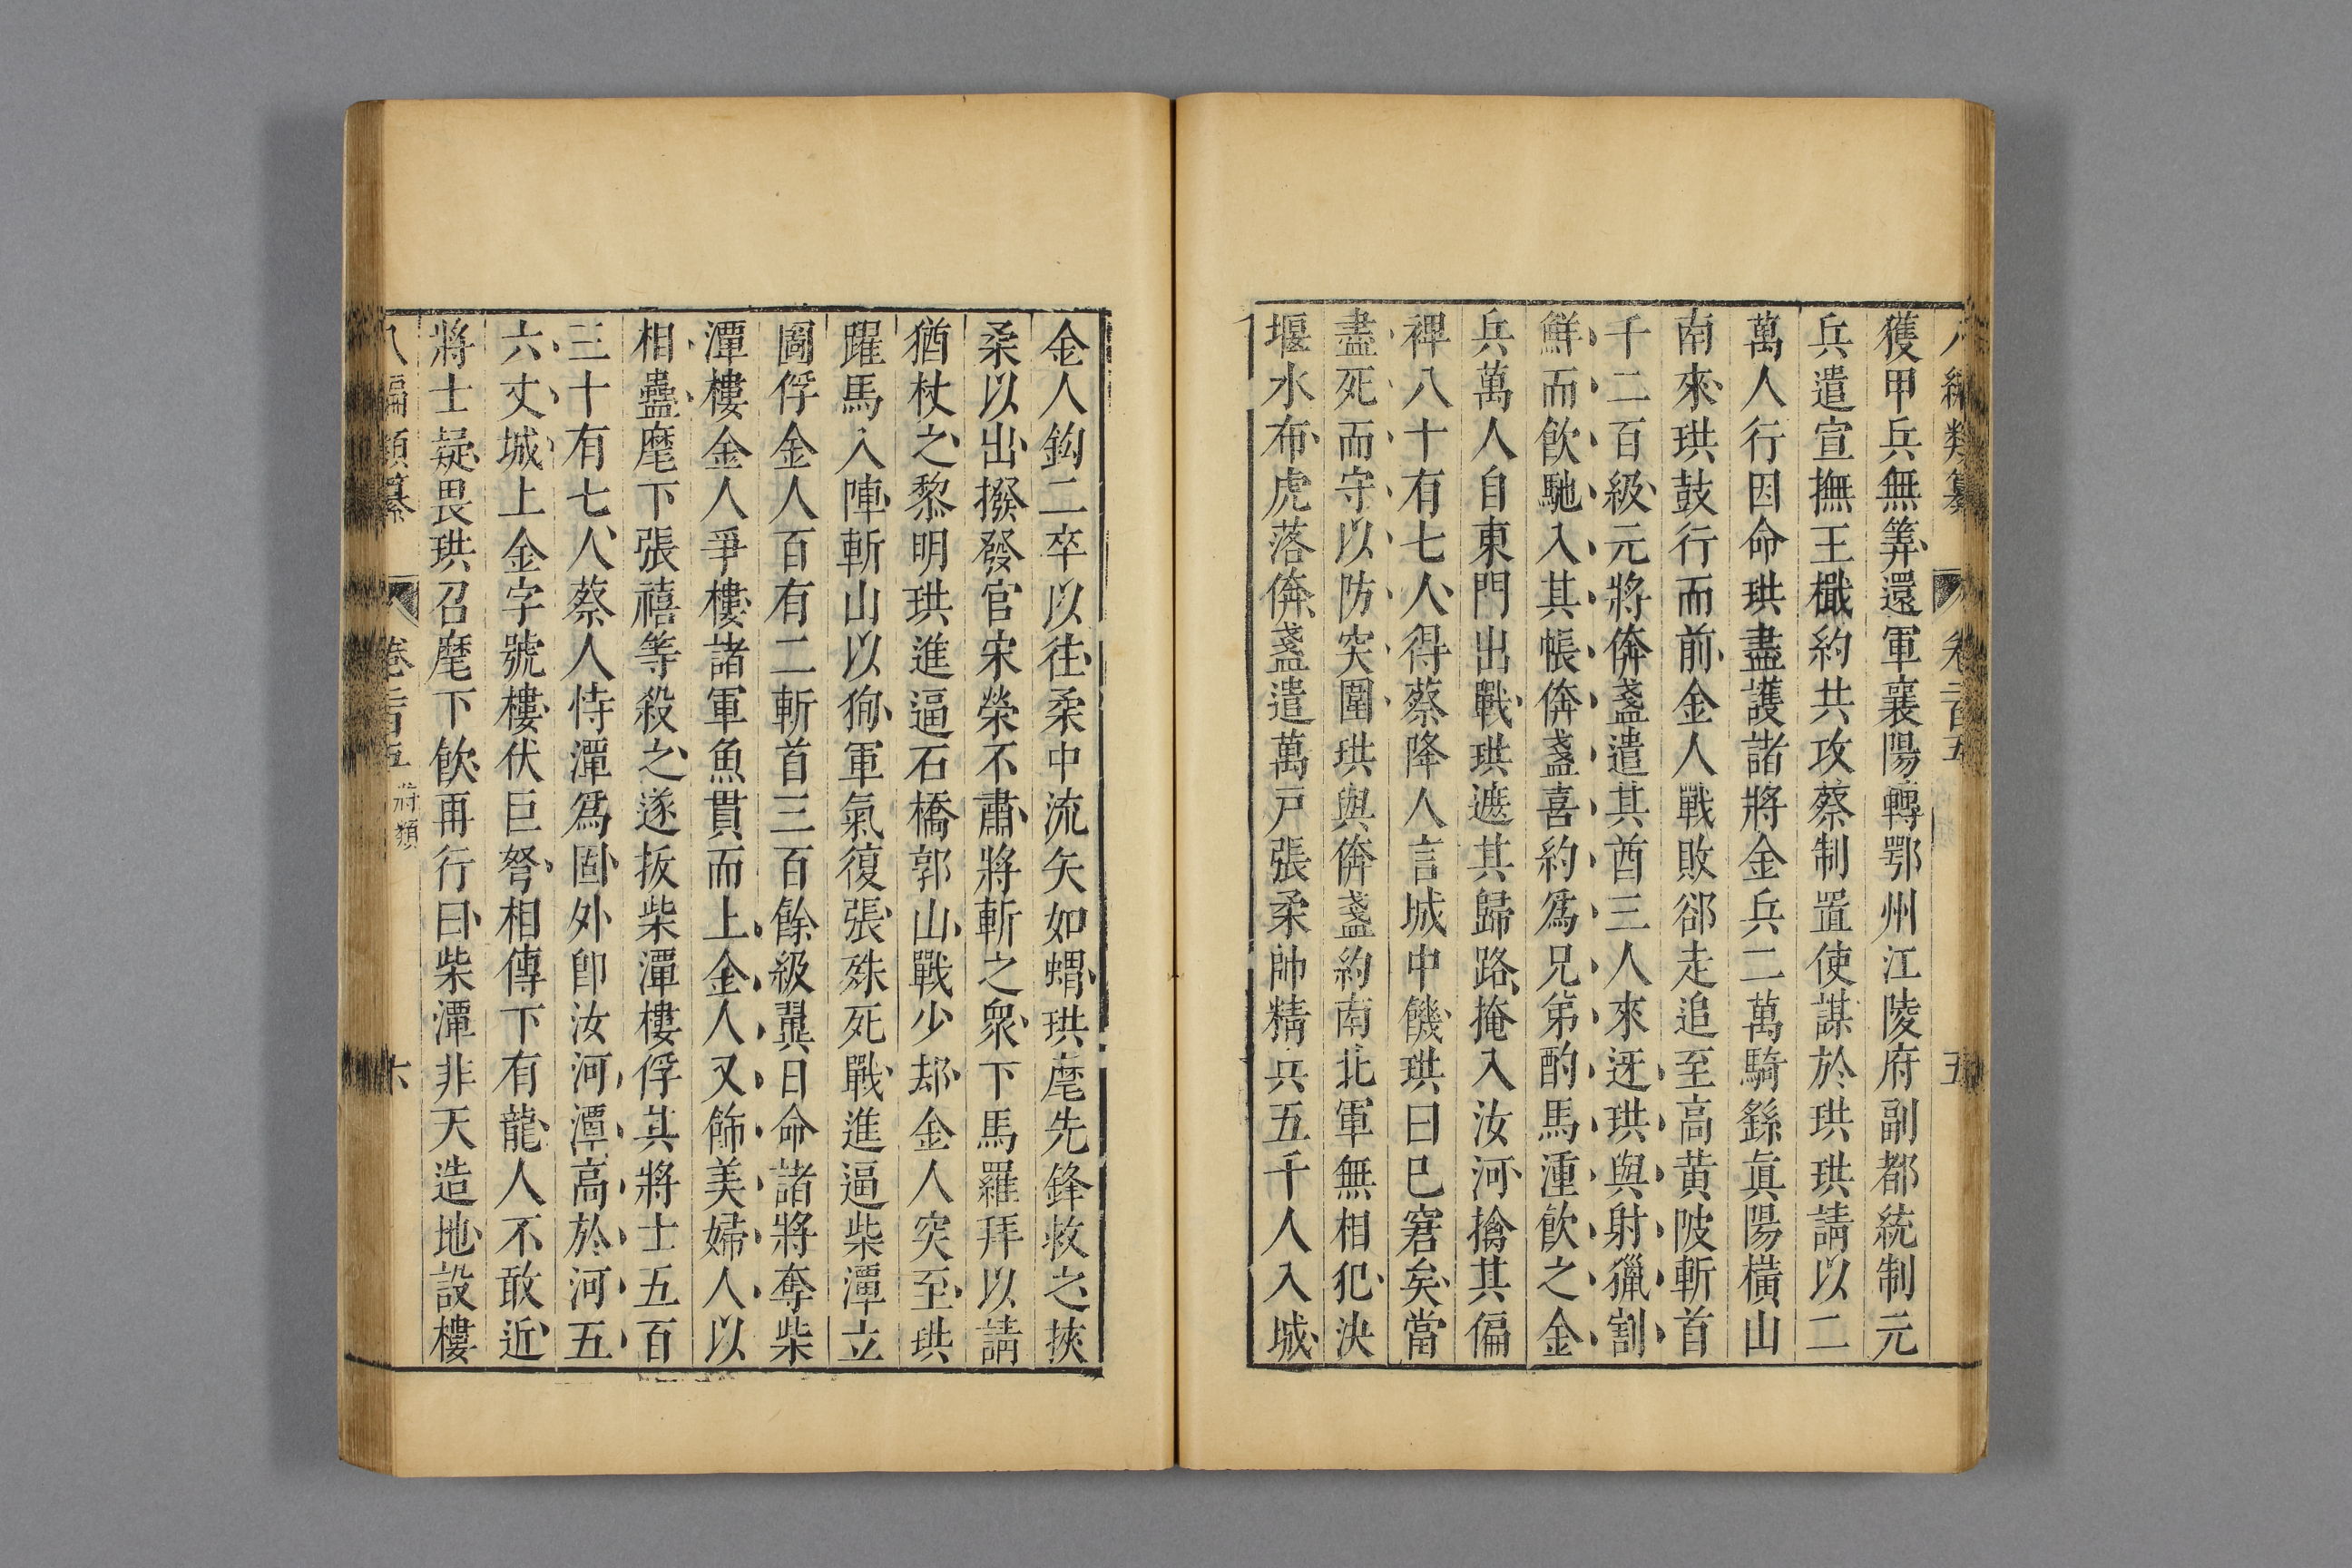 八編類纂 卷二百五 五
獲甲兵無筭還軍襄陽轉鄂州江陵府副都統制元
兵遣宣撫王檝約共攻蔡制置使謀於珙珙請以二
萬人行因命珙盡護諸將金兵二萬騎繇眞陽橫山
南來珙鼓行而前金人戰敗郤走追至高黄陂斬首
千二百級元將倴盞遣其酋三人來迓珙與射獵割
鮮而飲馳入其帳倴盞喜約爲兄弟酌馬湩飲之金
兵萬人自東門出戰珙遮其歸路掩入汝河擒其偏
裨八十有七人得蔡降人言城中饑珙曰巳窘矣當
盡死而守以防突圍珙與倴盞約南北軍無相犯決
堰水布虎落倴盞遣萬戸張柔帥精兵五千人入城
金人鈎二卒以往柔中流矢如蝟珙麾先鋒救之挾
柔以出撥發官宋榮不肅將斬之衆下馬羅拜以請
猶杖之黎明珙進逼石橋郭山戰少却金人突至珙
躍馬入陣斬山以狥軍氣復張殊死戰進逼柴潭立
圖俘金人百有二斬首三百餘級翼日命諸將奪柴
潭樓金人爭樓諸軍魚貫而上金人又飾美婦人以
相蠱麾下張禧等殺之遂拔柴潭樓俘其將士五百
三十有七人蔡人恃潭爲固外卽汝河潭高於河五
六丈城上金字號樓伏巨弩相傳下有龍人不敢近
將士疑畏珙召麾下飲再行曰柴潭非天造地設樓
八編類纂 卷二百五 將類 六